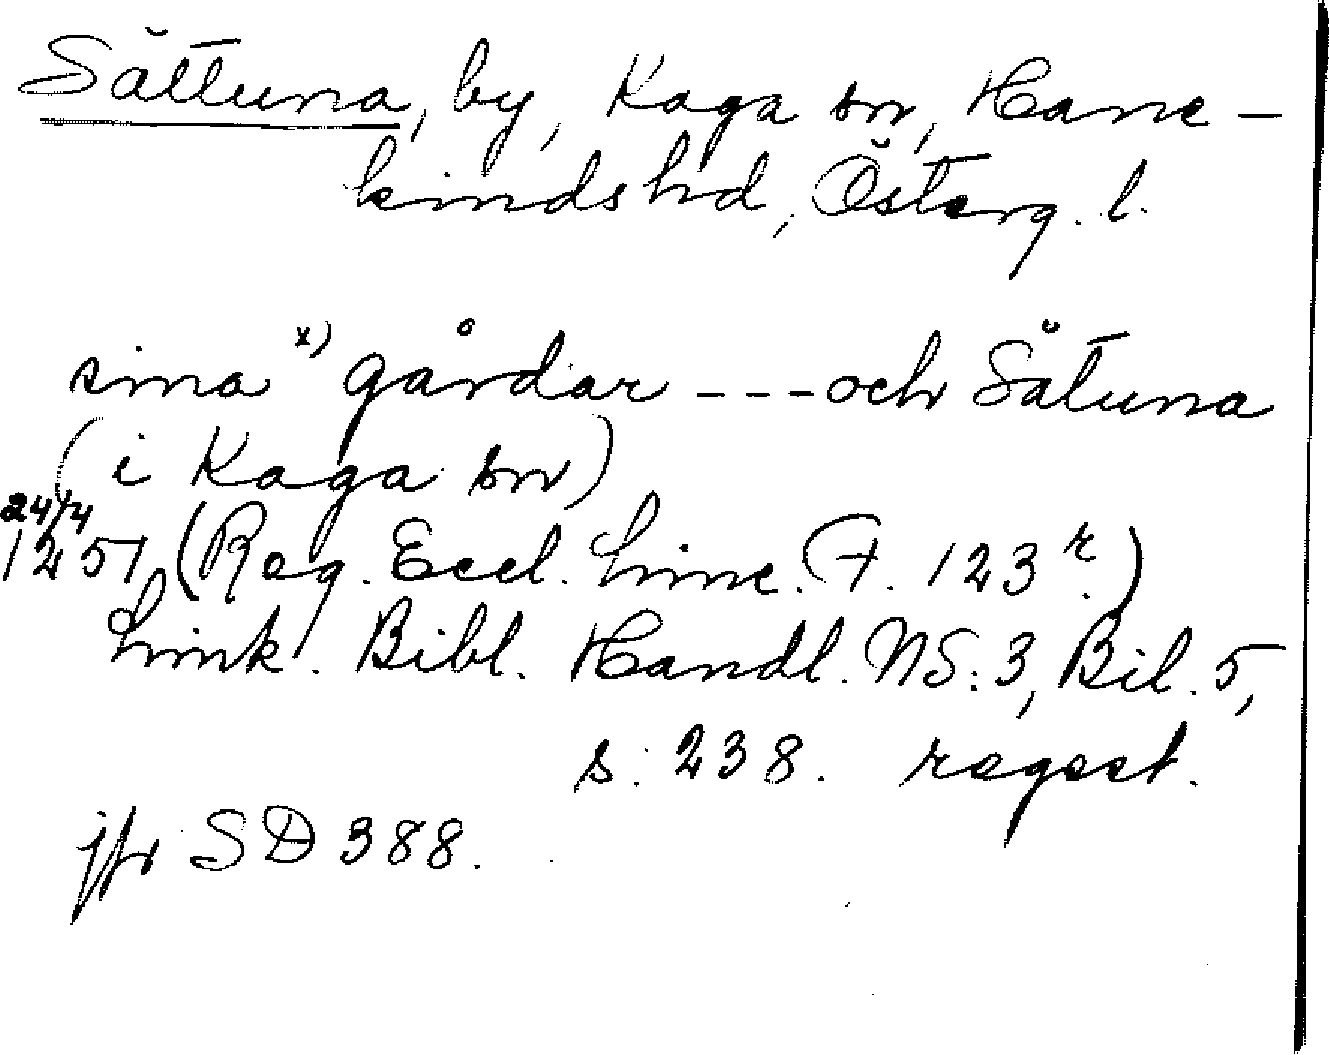 Sättuna, by, Kaga sn, Hane-
kinds hd, Österg. l.
sina x) gårdar - - - och Sätuna
(i Kaga sn)
24/4
1251 (Reg. Eccl. Linc. f. 123 r.)
Link. Bibl. Handl. NS: 3, Bil. 5,
s. 238. regest.
jfr SD 388.